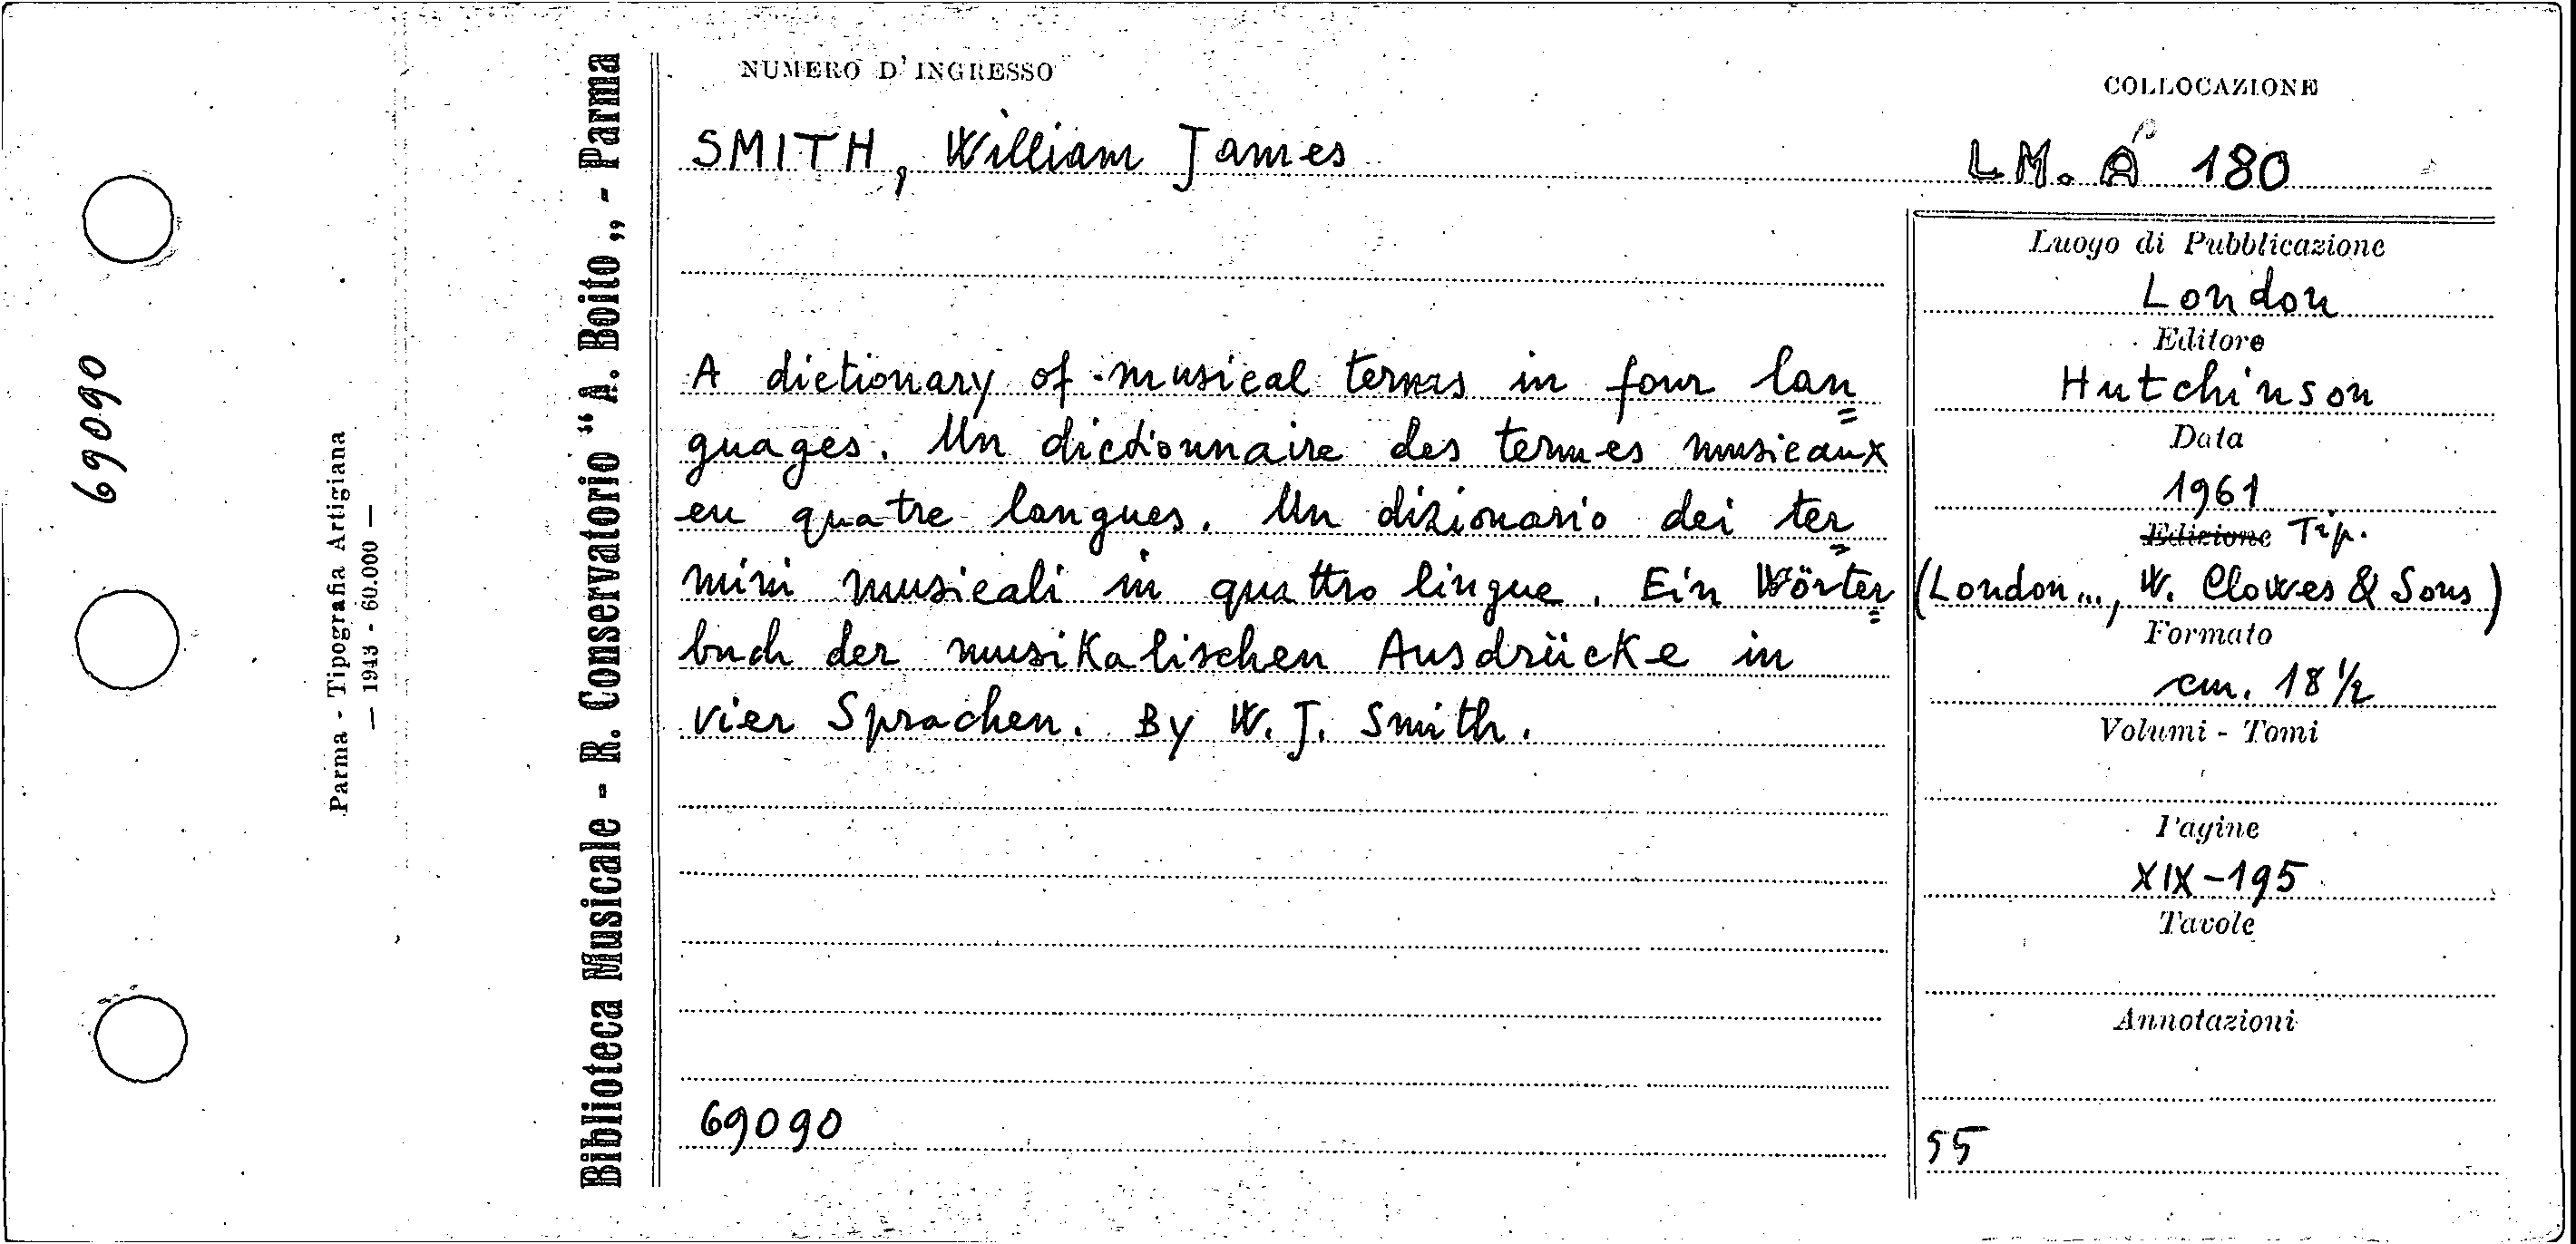 69090
Parma - Tipografia Artigiana
— 1943 - 60.000 —
Biblioteca Musicale - R. Conservatorio “A. Boito„ - Parma
NUMERO D'INGRESSO
COLLOCAZIONE
SMITH, William James
LM. A 180
A dictionary of musical terms in four lan=
guages. Un dictionnaire des termes musicaux
en quatre langues. Un dizionario dei ter=
mini musicali in quattro lingue. Ein Wörter=
buch der musikalischen Ausdrücke in
vier Sprachen. By W. J. Smith.
69090
Luogo di Pubblicazione
London
Editore
Hutchinson
Data
1961
Edizione Tip.
(London..., W. Clowes & Sons)
Formato
cm. 18 1/2
Volumi - Tomi
Pagine
XIX-195
Tavole
Annotazioni
55